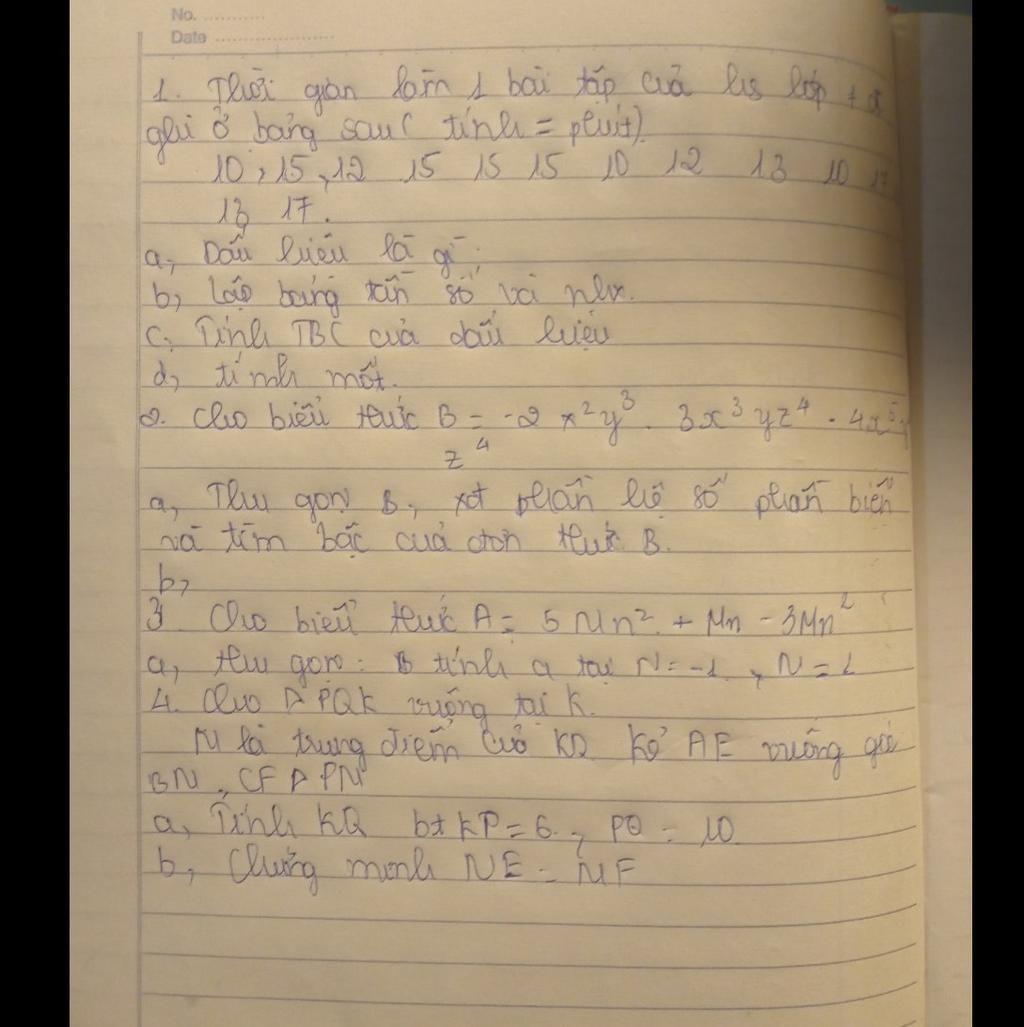 No. ............
Date ........................
1. Thời gian làm 1 bài tập của hs lớp 7
ghi ở bảng sau ( tính = phút)
10, 15, 12 15 15 15 10 12 13 10 17
13 17.
a, Dấu hiệu là gì.
b, Lập bảng tần số và nhx.
c, Tính TBC của dấu hiệu
d, tính mốt.
2. Cho biểu thức B = -2 x²y³ . 3x³yz⁴ . 4x⁵
z⁴
a, Thu gọn B, phần hệ số phần biến
và tìm bậc của đơn thức B.
b,
3 Cho biểu thức A = 5 Mn² + Mn - 3Mn²
a, thu gọn : B tính a tại N = -1, N = 1
4. Cho Δ PQK vuông tại K.
N là trung điểm của KQ Kẻ AE vuông góc
BN, CF Δ PN
a, Tính KQ bt KP = 6, PQ = 10
b, Chứng minh NE = NF